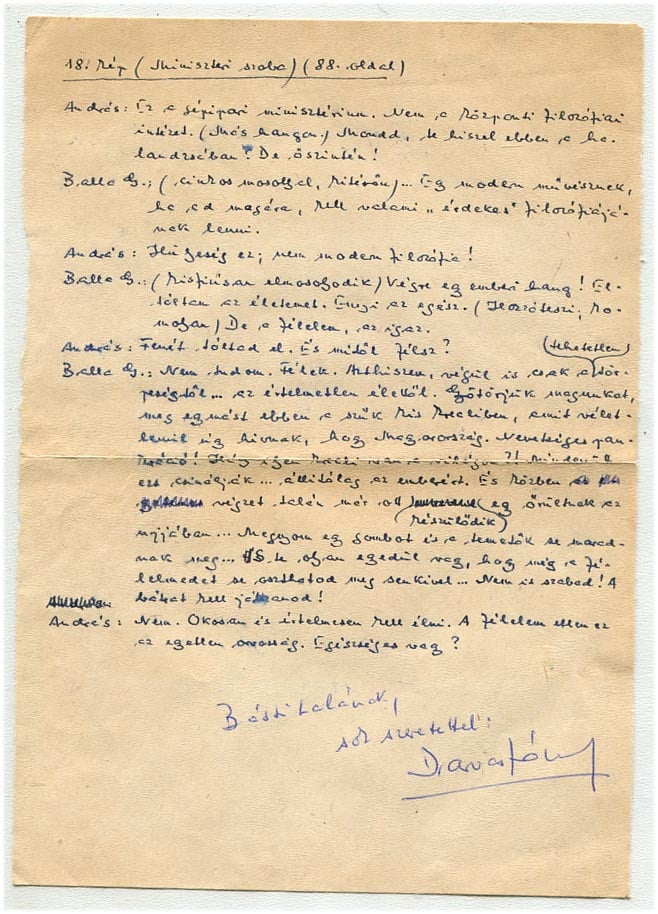 18. kép (Miniszteri szoba) (88. oldal)
András: Ez a gépipari minisztérium. Nem a Központi Filozófiai
intézet. (Más hangon.) Mondd, te hiszel ebben a ha-
landzsában? De őszintén!
Balla G.: (cinkos mosollyal, kitérőn)... Egy modern művésznek,
ha ad magára, kell valami „érdekes" filozófiájá-
nak lenni.
András: Hülyeség ez; nem modern filozófia!
Balla G.: (kisfiúsan elmosolyodik) Végre egy emberi hang! El-
tóltam az életemet. Ennyi az egész. (Hozzáteszi; ko-
molyan) De a félelem, az igaz.
András: Fenét tóltad el. És mitől félsz?
(tehetetlen)
Balla G.: Nem tudom. Félek. Azthiszem, végül is csak a tör-
peségtől... az értelmetlen élettől. Gyötörjük magunkat,
meg egymást ebben a szűk kis krecliben, amit vélet-
lenül úgy hívnak, hogy Magyarország. Nevetséges pan-
Hány ilyen van a világon?! Mindenütt
ezt csinálják... állítólag az emberért. És közben
végzet talán már ott egy őrültnek az
(készülődik)
ujjában... Megnyom egy gombot és a temetők se marad-
nak meg... S te olyan egyedül vagy, hogy még a fé-
lelmedet se oszthatod meg senkivel... Nem is szabad! A
bátrat kell játszanod!
András: Nem. Okosan és értelmesen kell élni. A félelem ellen ez
az egyetlen orvosság. Egészséges vagy?
sok szeretettel: